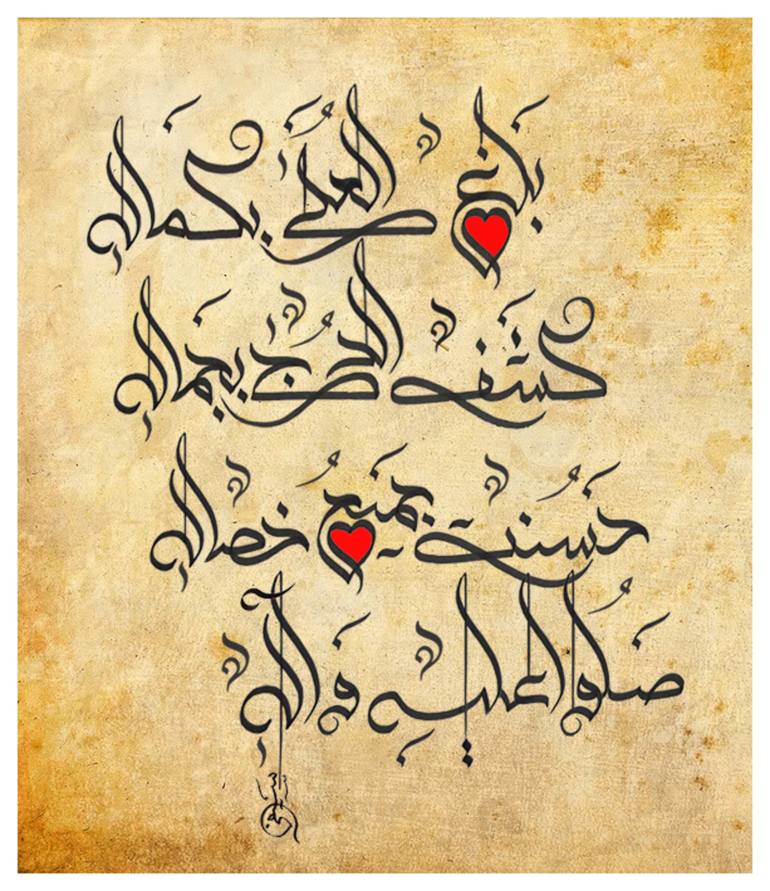 بَلَغَ العُلَىٰ بِكَمَالِهِ
كَشَفَ الدُّجَىٰ بِجَمَالِهِ
حَسُنَتْ جَمِيعُ خِصَالِهِ
صَلُّوا عَلَيْهِ وَآلِهِ